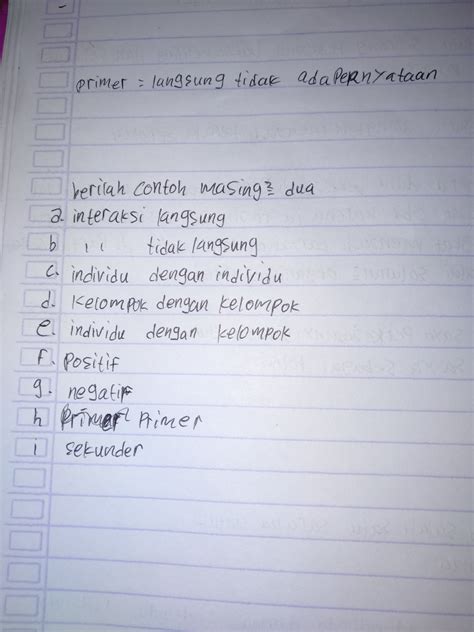 primer = langsung tidak ada Pernyataan
berilah contoh masing² dua
a. interaksi langsung
b ı ı tidak langsung
c. individu dengan individu
d. Kelompok dengan kelompok
e. individu dengan kelompok
F. Positif
g. negatif
h Primer
i sekunder